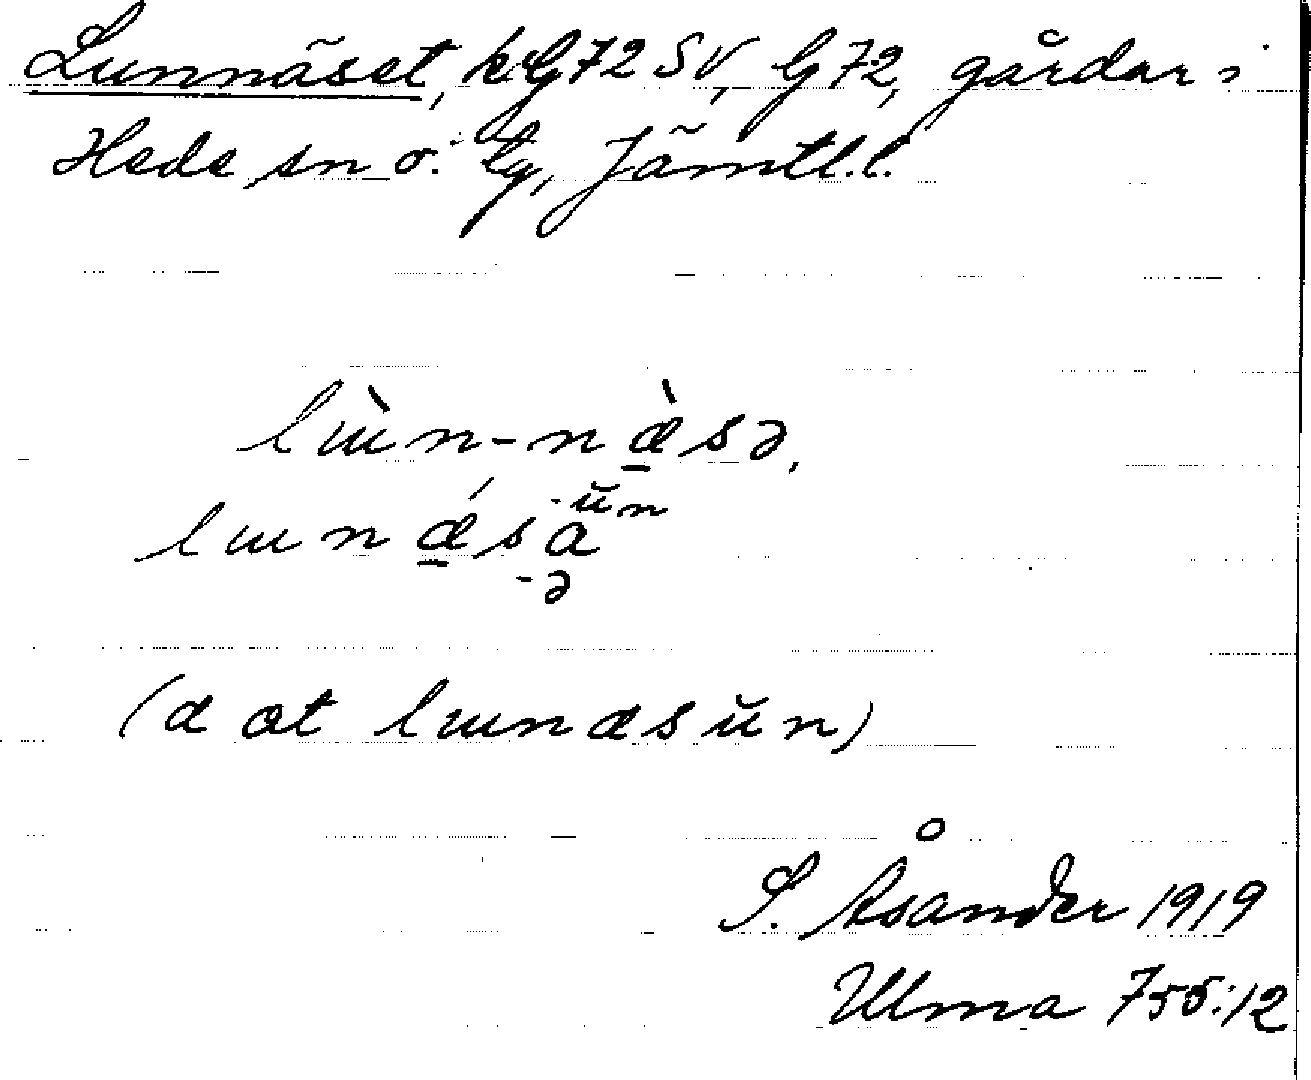 Lunnäset, kG72SV, G72, gårdar i
Hede sn o. tg, Jämtl.l.
lɯ̀n-næ̀sə,
lɯnǽsa -ŭn
-ə
(dat lɯnæsŭn)
S. Åsander 1919
Ulma 755:12